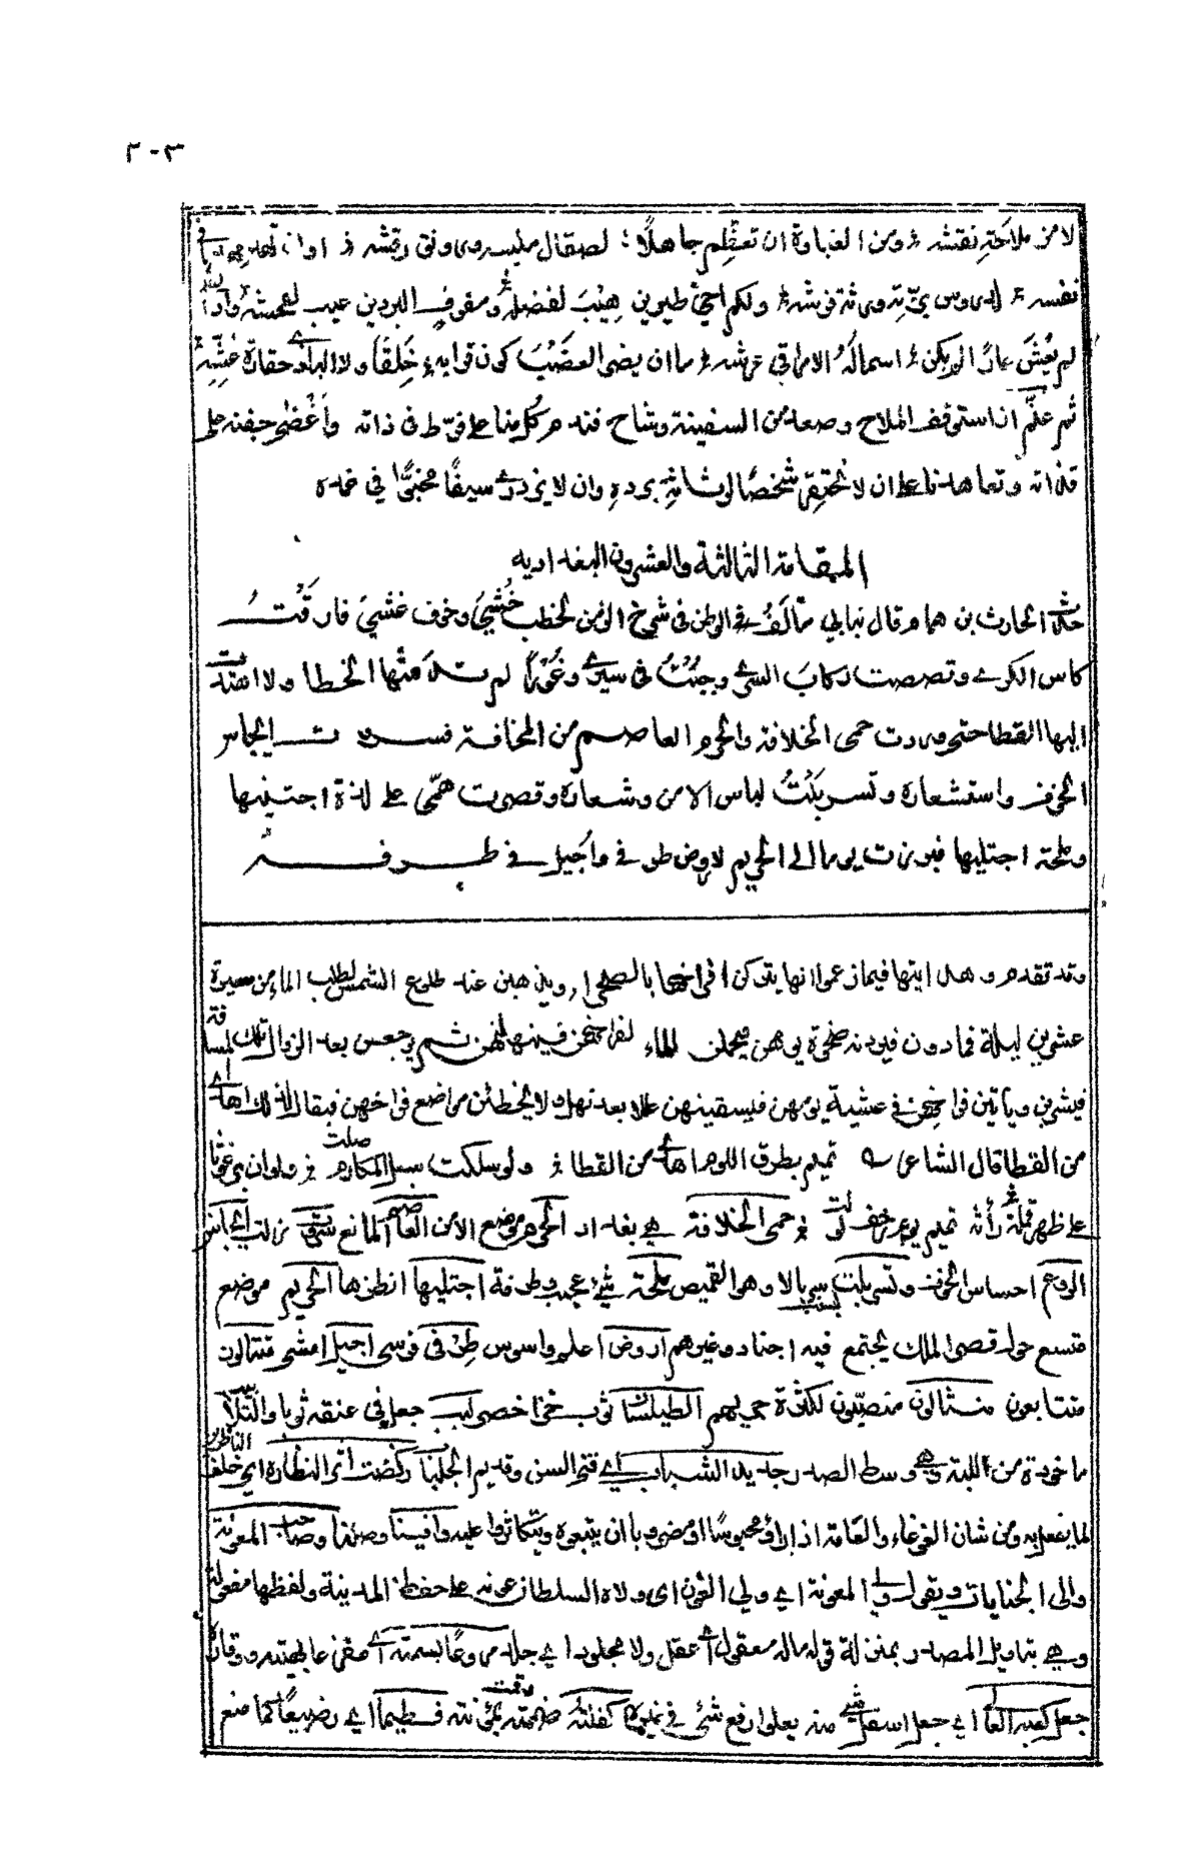 ٢٠٣
لا من ملاحة نقشه ومن الغباوة ان تعظم جاهلا لصقال ملبسه ورونق رقشه او ان تهين مهذبا في
نفسه لدروس بزته ورثة فرشه ولكم اخي طمرين هيب لفضله ومفوف البردين عيب لفحشه واذا الفتى
لم يغش عارا لم يكن اسماله الا مراقي عرشه ما ان يضر العضب كون قرابه خلقا ولا البازي حقارة عشه
ثم علم ان استوقف الملاح وصعد من السفينة وساح فندم كل منا على فرط في ذاته واغضى جفنه على
قذاته وتعاهدنا على ان لا نحتقر شخصا لرثاثة برده وان لا نزدري سيفا مخبيا في غمده
المقامة الثالثة والعشرون البغداديه
حكى الحارث بن همام قال نبا بي مالف الوطن في شرخ الزمن لخطب خشي وخوف غشي فارقت
كاس الكرى ونصصت ركاب السرى وجبت في سيري وعورا لم تدمثها الخطا ولا اهتدت
اليها القطا حتى وردت حمى الخلافة والحرم العاصم من المخافة فسروت ايجاس
الخوف واستشعاره وتسربلت لباس الامن وشعاره وقصرت همي على لذة اجتنيها
وملحة اجتليها فبرزت يوما الى الحريم لاروض طرفي واجيل في طرفه
وقد تقدم وهدايتها فيما زعموا انها يتركن افراخها بالصحراء ويذهبن عند طلوع الشمس لطلب الماء من مسيرة
عشرين ليلة فما دون فيردنه ضحوة يومهن فيحملن الماء لفراخهن فينهلنهن ثم يرجعن بعد الزوال تلك المسافة
فيشربن وياتين فراخهن في عشية يومهن فيسقينهن عللا بعد نهل ولا يخطئن مواضع فراخهن فيقال لذلك اهدى
من القطا قال الشاعر تميم بطرق اللوم اهدى من القطا ولو سلكت سبل المكارم ضلت ولو ان برغوثا
على ظهر قملة رأته تميم يوم زحف لولت حمى الخلافة هي بغداد الحرم موضع الامن العاصم المانع سروت نزلت ايجاس
الروع احساس الخوف وتسربلت لبست سربالا وهو القميص ملحة شيء عجيب وطرفة اجتليها انظرها الحريم موضع
متسع حول قصر الملك يجتمع فيه اجناده وغيرهم اروض اعلم واسوس طرفي فرسي اجيل امشي متتالون
متتابعون منثالون منصبون لكثرة جريهم الطيلسان ثوب خز اخضر لبب جعل في عنقه ثوبا والتلابيب
ماخوذة من اللبة وهي وسط الصدر جديد الشباب اي فتي السن وقديم الجلباب ركضت اثر النظارة اي خلف الناظرين
لما يفعل به ومن شان الغوغاء والعامة اذا راوا محبوسا او مضروبا ان يتبعوه ويتكاثروا عليه وافينا وصلنا وصاحب المعونة
والى الجنايات ويقولون المعونة اي ولي العون اي ولاه السلطان عونه على حفظ المدينة ولفظها مفعولة
وهي بتاويل المصدر بمنزلة قوله ماله معقول اي عقل ولا مجلود اي جلد مروعا بسمته اي مفزعا بهيئته ووقاره
جعل كعبه العالي اي جعل اسفل شيء منه يعلو ارفع شئ في غيره كفلته ضممته مؤنته فطيما اي رضيعا كما منع